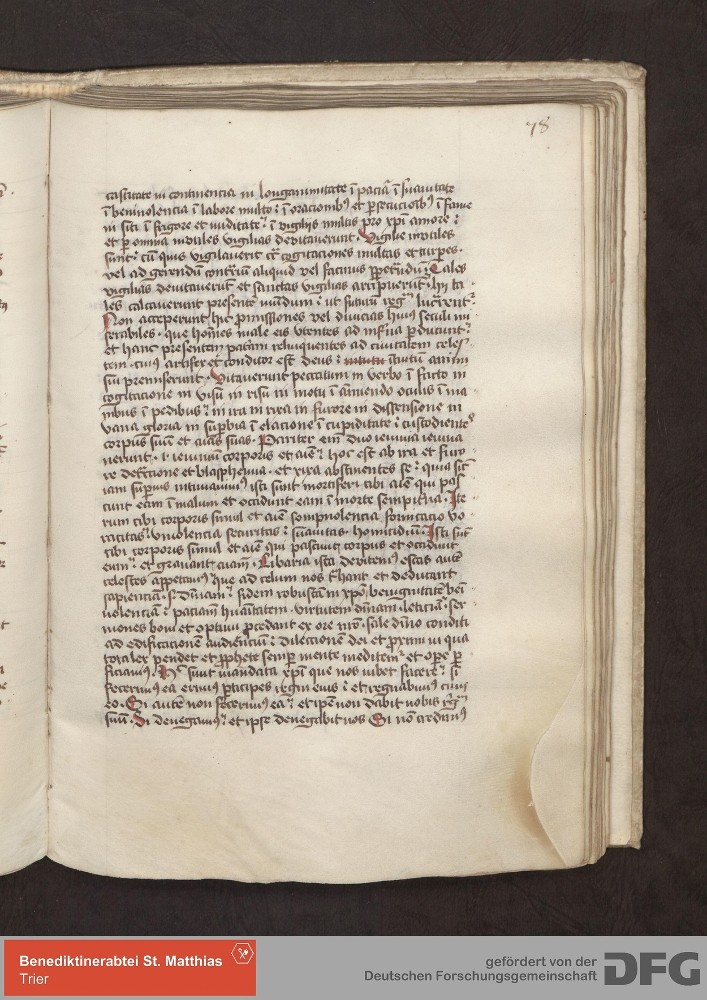 78
castitate in continencia in longanimitate ī paciā ī suavitate
ī benivolencia ī labore multo : ī oracionibꝰ et ꝑsecucioībꝰ ī fame
in siti ī frigore et nuditate : ī vigiliis multis pro xpī amore :
et ꝑ omnia inutiles vigilias devitaverunt . Vigilie inutiles
sunt : cū quis vigilaverit cogitaciones multas et turpes .
vel ad gerendū aliquid vel facinus Tales
vigilias devitaverūt et sanctas vigilias arripuerūt . hii ta
les calcaverunt presentē mūdum : ut futurū regnū
Non acceperunt hic ꝓmissiones vel divicias huiꝰ seculi mi
serabiles . que hoīes male eis utentes ad īferna ꝑducunt :
et hanc presentem patriam relinquentes ad civitatem celes
tem . cuiꝰ artifex et conditor est deus : animi
sui premiserunt . Vitaverunt peccatum in verbo ī facto in
cogitacione in visu in risu in motu ī annuendo oculis ī ma
nibus ī pedibus : in ira in rixa in furore in dissensione in
vana gloria in suꝑbia ī elacione ī cupiditate : custodientes
corpus suū et aīas suas . Pariter enī duo ieiunia ieiuna
verunt . ieiuniū corporis et aīe : hoc est ab ira et furo
re detractione et blasphemia . et rixa abstinentes se : quia sic̄
iam suꝑius intimavimꝰ isti sunt mortiferi cibi aīe qui pas
cunt eam ī malum et occidunt eam ī morte sempiterna . Ite
rum cibi corporis simul et aīe sompnolencia fornicacio vo
racitas vinolencia securitas : suavitas . homicidiū . Isti sūt
cibi corporis simul et aīe qui pascunt corpus et occidunt
eum : et gravant aīam . Cibaria ista devitemꝰ escas autē
celestes appetamꝰ que ad celum nos trahant et deducant
sapienciā . fidem robustam in xpō benignitatē ben̄
uolenciā : paciam hūanitatem . virtutem leticiā : ser
mones boni et optimi ꝓcedant ex ore nrō . sale divino conditi
ad edificacionē audienciū : dilectionem dei et ꝓximi in qua
tota lex pendet et ꝓphete semper mente meditemur et oꝑe ꝑ
ficiamꝰ . Hec sunt mandata xpī que nos iubet facere : si
fecerimꝰ ea erimꝰ ꝑticipes regni eius : et regnabimꝰ cum
eo . Si autē non fecerimꝰ ea : et ipse non dabit nobis regnū
suū . Si denegamꝰ : et ipse denegabit nos Si nō credamꝰ
Benediktinerabtei St. Matthias
Trier
gefördert von der
Deutschen Forschungsgemeinschaft
DFG